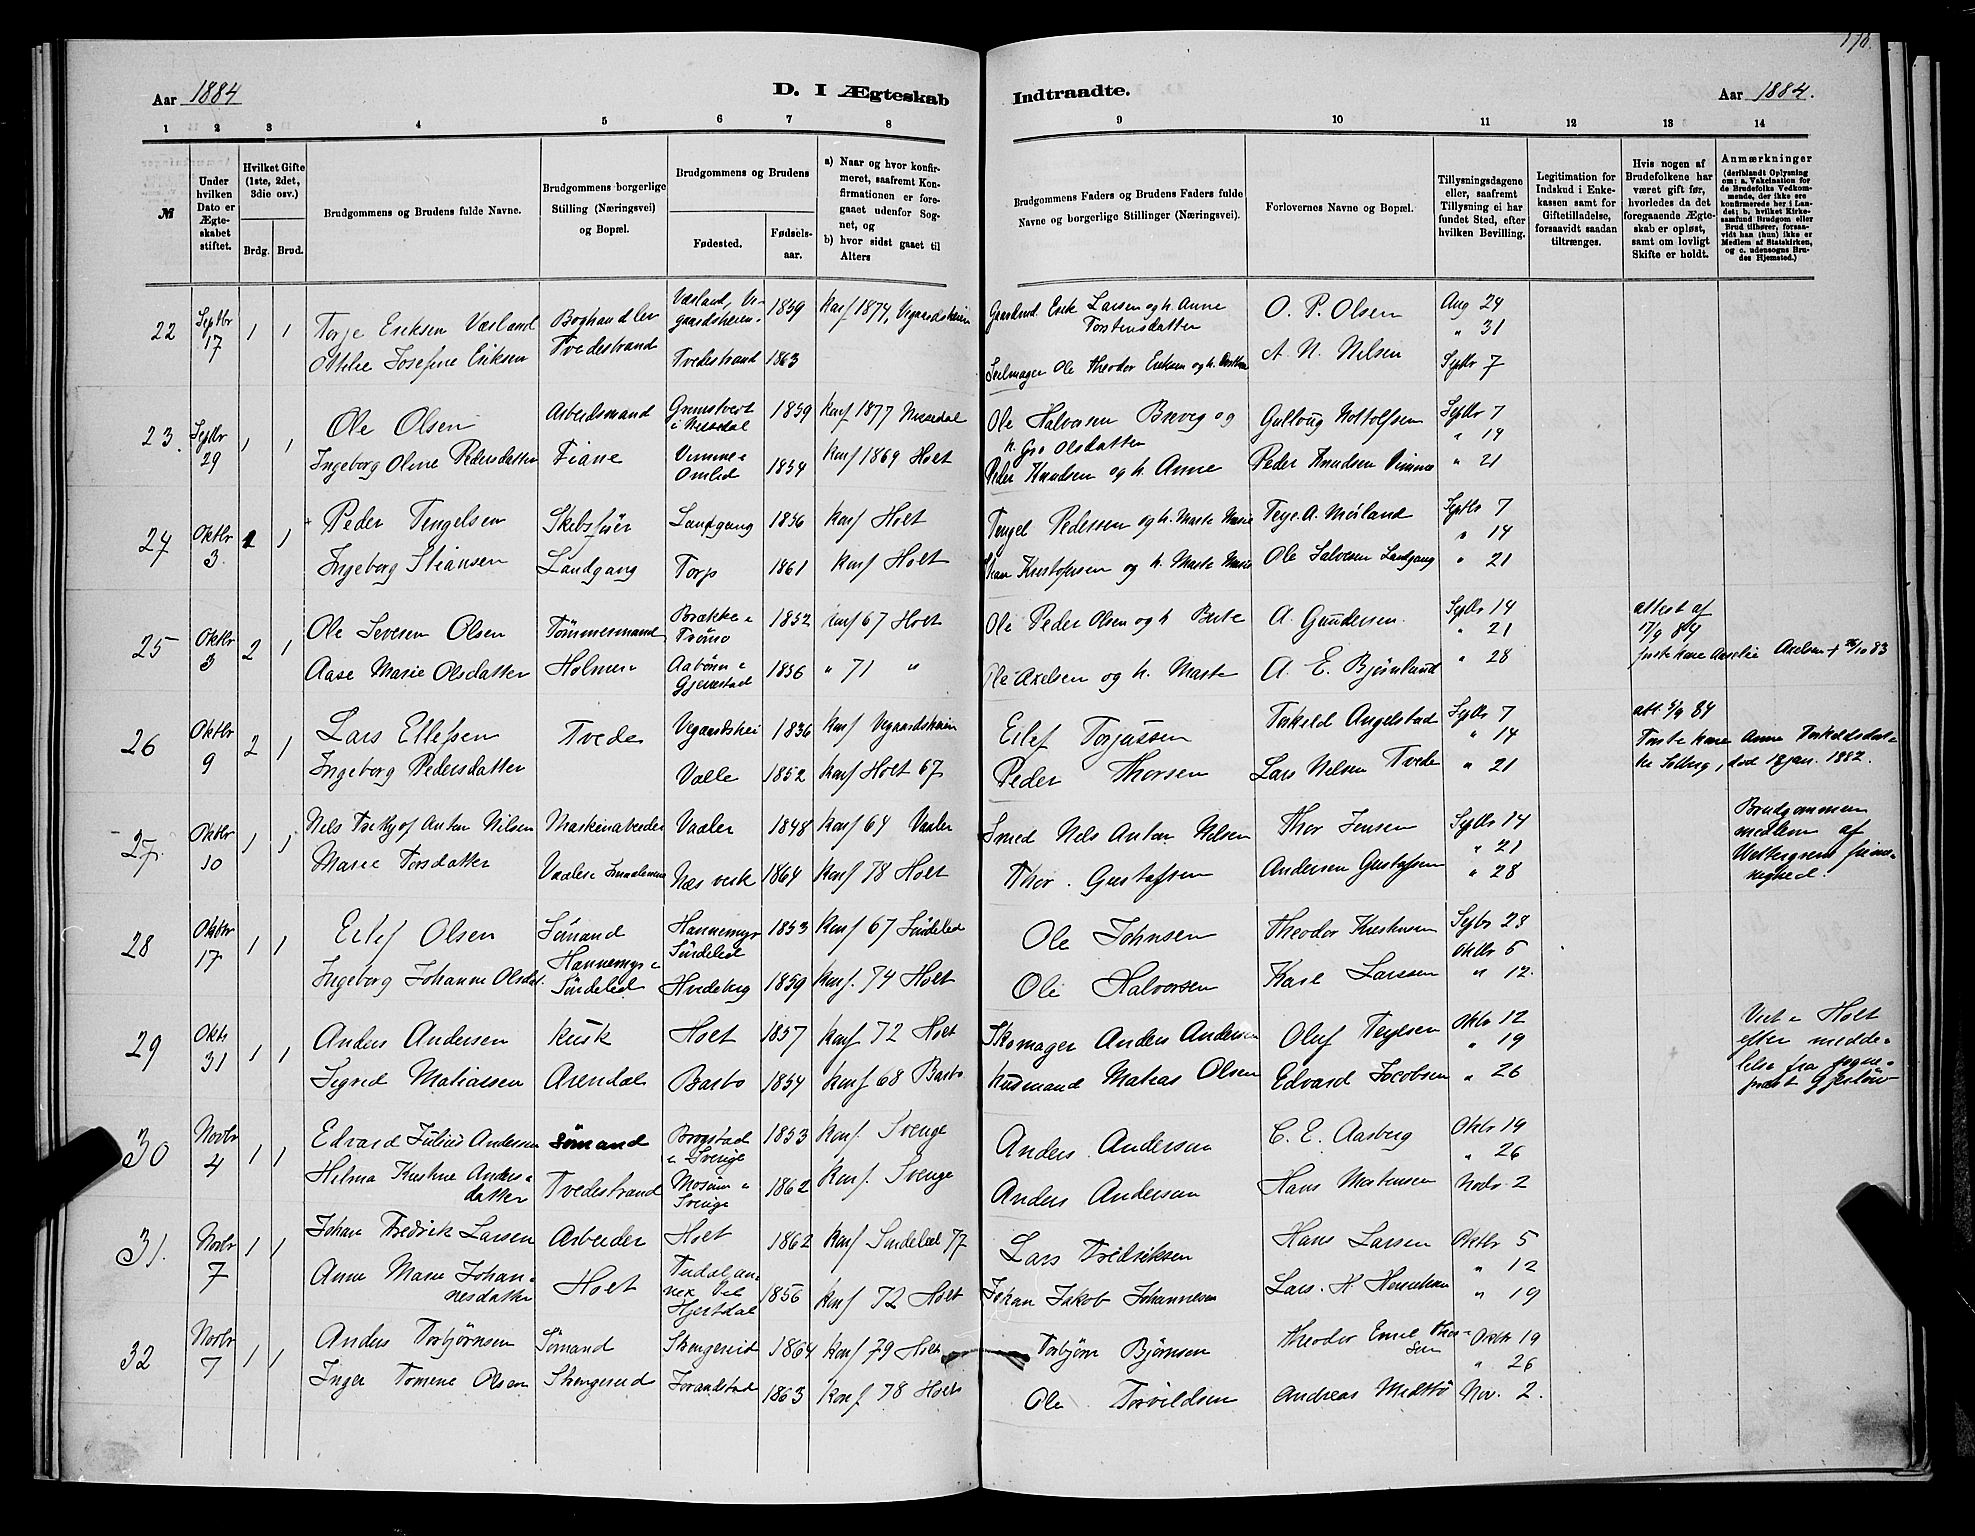 178.
Aar 1884
D. I Ægteskab
Indtraadte.
Aar 1884.
1 2 3 4 5 6 7 8 9 10 11 12 13 14
№
Under hvilken Dato er Ægteskabet stiftet.
Hvilket Gifte (1ste, 2det, 3die osv.)
Brdg. Brud.
Brudgommens og Brudens fulde Navne.
Brudgommens borgerlige Stilling (Næringsvei) og Bopæl.
Brudgommens og Brudens
Fødested.
Fødselsaar.
a) Naar og hvor konfirmeret, saafremt Konfirmationen er foregaaet udenfor Sognet, og
b) hvor sidst gaaet til Alters
Brudgommens Faders og Brudens Faders fulde Navne og borgerlige Stillinger (Næringsvei).
Forlovernes Navne og Bopæl.
Tillysningsdagene eller, saafremt Tillysning ei har fundet Sted, efter hvilken Bevilling.
Legitimation for Indskud i Enkekassen samt for Giftetilladelse, forsaavidt saadan tiltrænges.
Hvis nogen af Brudefolkene har været gift før, hvorledes da det foregaaende Ægteskab er opløst, samt om lovligt Skifte er holdt.
Anmærkninger (deriblandt Oplysning om: a. Vakcination for de Brudefolks Vedkommende, der ikke ere konfirmerede her i Landet; b. hvilket Kirkesamfund Brudgom eller Brud tilhører, forsaavidt han (hun) ikke er Medlem af Statskirken, og c. udensogns Brudes Hjemsted.)
22 Septbr 17 1 1 Torje Eriksen Væsland Boghandler Væsland, Vegaardsheien 1859 Konf 1874, Vegaardsheien Gaardmd Erik Larsen og h. Anne Torstensdatter O. P. Olsen Aug 24
" 31
Ottilie Josefine Eriksen Tvedestrand Tvedestrand 1863 Seilmager Ole Theodor Eriksen og h. A. N. Nilsen Septbr 7
23. Septbr 29 1 1 Ole Olsen Arbeidsmand i Nissedal 1859 Konf 1877 Nissedal Ole Halvorsen Brevig og h. Gro Olsdatter Gullaug Nottolfsen Septbr 7
" 14
Ingeborg Oline Pedersdatter Fiane Vimme i Omlid 1854 Konf 1869 Holt Peder Knudsen og h. Anne Peder Knudsen Vimme " 21
24 Oktbr 3. 1 1 Peder Tengelsen Skibsfører Landgang 1856 Konf Holt Tengel Pedersen og h. Marte Marie A. Meiland Septbr 7
" 14
Ingeborg Stiansen Landgang Torp 1861 Konf Holt Stian Kristofersen og h. Marte Marie Ole Salvesen Landgang " 21
25 Oktbr 3 2 1 Ole Severin Olsen Tømmermand Brække i Tromø 1852 Konf 67 Holt Ole Peder Olsen og h Berte A. Gundersen. Septbr 14
" 21
attest af 17/9 84
Aase Marie Olsdatter Holmen Aabøen i Gjerrestad 1856 " 71 " Ole Axelsen og h. Marte A. E. Bjønlund " 28 første Kone Axelsen † 26/10 83
26 Oktbr 9 2 1 Lars Ellefsen Tvede Vegaardshei 1836 Konf Vegaardsheien Eilef Torjussen Torkeld Angelstad Septbr 7
" 14
att. 5/9 84
Første Kone Anne Torkeldsdatter Solberg, død 18 jan. 1882.
Ingeborg Pedersdatter Valle 1852 Konf Holt 67 Peder Thorsen Lars Nilsen Tvede " 21
27. Oktbr 10 1 1 Nils Fritjof Anton Nilsen Maskinarbeider Vaaler 1848 Konf 64 Vaaler Smed Nils Anton Nilsen Thor Jensen Septbr 14
" 21
Brudgommen medlem af Wettergrens frimenighed.
Marie Torsdatter Vaaler i Smaalenene Næs verk 1864 Konf 78 Holt Thor Gustafsen Andersen Gustafsen " 28
28 Oktbr 17 1 1 Eilef Olsen Sømand Hannemyr Søndeled 1853 Konf 67 Søndeled Ole Johnsen Theodor Kristensen Septbr 28
Oktbr 5
Ingeborg Johanne Olsdat. Hannemyr i Søndeled Hvideberg 1859 Konf. 74 Holt Ole Halvorsen Karl Larssen " 12.
29 Oktbr 31 1 1 Anders Andersen Kusk Holt 1857 Konf 72 Holt Skomager Anders Andersen Oluf Terjesen Oktbr 12
" 19
Viet i Holt efter meddelelse fra sognepræst Gjerløw
Sigrid Matiassen Arendal Barbo 1854 Konf 68 Barbo Husmand Matias Olsen Edvard Jacobsen " 26
30 Novbr 4 1 1 Edvard Julius Andersen Sømand Brogstad i Sverige 1853 Konf. Sverige Anders Andersen C. E. Aasberg Oktbr 19
" 26
Hilma Kristine Andersdatter Tvedestrand i Sverige 1862 Konf. Sverige Anders Andersen Hans Mortensen Novbr 2
31. Novbr 7 1 1 Johan Fredrik Larsen Arbeider Holt 1862 Konf Søndeled 77 Lars Fredriksen Hans Larsen Oktbr 5
" 12
Anne Marie Johannesdatter Holt Tudal annex til Hjertdal 1856 Konf 72 Holt Johan Jakob Johannesen Lars. H. " 19
32 Novbr 7 1 1 Anders Torbjørnsen Sømand Skengereid 1864 Konf 79 Holt Torbjørn Bjørnsen Theodor Emil Thorsen Oktbr 19
" 26
Inger Tomine Olsen Skengereid Jorandstad 1863 Konf. 78 Holt Ole Torvildsen Andreas Midttø Nov. 2.